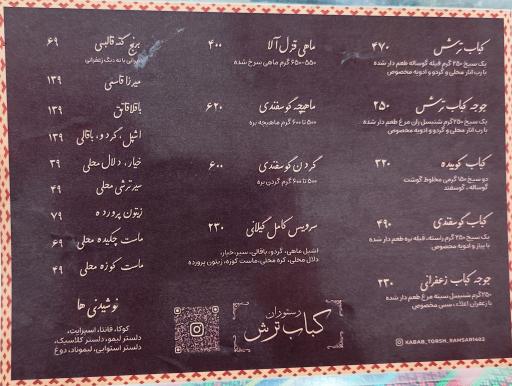 کباب ترش ۴۷۰
یک سیخ ۲۵۰ گرم فیله گوساله طعم دار شده
با رب انار محلی و گردو و ادویه مخصوص
جوجه کباب ترش ۲۵۰
یک سیخ ۲۵۰ گرم شنیسل ران مرغ طعم دار شده
با رب انار محلی و گردو و ادویه مخصوص
کباب کوبیده ۳۲۰
دو سیخ ۱۵۰ گرمی مخلوط گوشت
گوساله، گوسفند
کباب گوسفندی ۴۹۰
یک سیخ ۲۵۰ گرم راسته، فیله بره طعم دار شده
با پیاز و ادویه مخصوص
جوجه کباب زعفرانی ۲۳۰
۲۵۰ گرم شنیسل سینه مرغ طعم دار شده
با زعفران اعلاء، سس مخصوص
KABAB_TORSH_RAMSAR1402
ماهی قزل آلا ۴۰۰
۵۵۰-۶۵۰ گرم ماهی سرخ شده
ماهیچه گوسفندی ۶۲۰
۵۰۰ تا ۶۰۰ گرم ماهیچه بره
گردن گوسفندی ۶۰۰
۵۰۰ تا ۶۰۰ گرم گردن بره
سرویس کامل گیلانی ۲۳۰
اشبل ماهی، گردو، باقالی، سیر، خیار،
دلال محلی، کره محلی، ماست کوزه، زیتون پرورده
رستوران
کباب ترش
برنج کته قالبی ۶۹
ایرانی با ته دیگ زعفرانی
میرزا قاسمی ۱۳۹
باقلاقاتق ۱۳۹
اشپل، گردو، باقالی ۱۳۹
خیار، دلال محلی ۳۹
سیر ترشی محلی ۴۹
زیتون پرورده ۷۹
ماست چکیده محلی ۶۹
ماست کوزه محلی ۴۹
نوشیدنی ها
کوکا، فانتا، اسپرایت،
دلستر لیمو، دلستر کلاسیک،
دلستر استوایی، لیموناد، دوغ